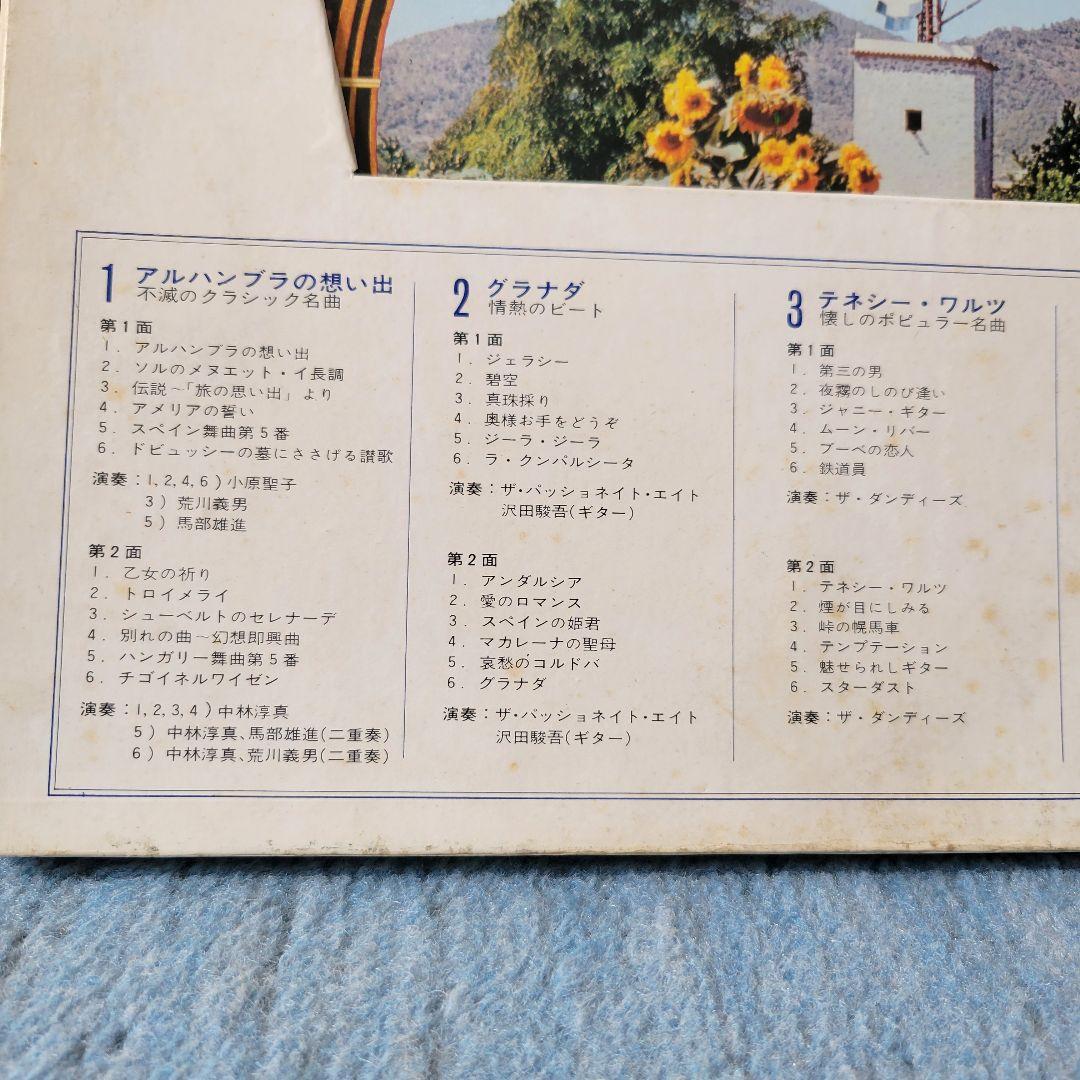 1 アルハンブラの想い出
不滅のクラシック名曲
第1面
1. アルハンブラの想い出
2. ソルのメヌエット・イ長調
3. 伝説~「旅の思い出」より
4. アメリアの誓い
5. スペイン舞曲第5番
6. ドビュッシーの墓にささげる讃歌
演奏:1,2,4,6)小原聖子
3)荒川義男
5)馬部雄進
第2面
1. 乙女の祈り
2. トロイメライ
3. シューベルトのセレナーデ
4. 別れの曲~幻想即興曲
5. ハンガリー舞曲第5番
6. チゴイネルワイゼン
演奏:1,2,3,4)中林淳真
5)中林淳真、馬部雄進(二重奏)
6)中林淳真、荒川義男(二重奏)
2 グラナダ
情熱のビート
第1面
1. ジェラシー
2. 碧空
3. 真珠採り
4. 奥様お手をどうぞ
5. ジーラ・ジーラ
6. ラ・クンパルシータ
演奏:ザ・パッショネイト・エイト
沢田駿吾(ギター)
第2面
1. アンダルシア
2. 愛のロマンス
3. スペインの姫君
4. マカレーナの聖母
5. 哀愁のコルドバ
6. グラナダ
演奏:ザ・パッショネイト・エイト
沢田駿吾(ギター)
3 テネシー・ワルツ
懐しのポピュラー名曲
第1面
1. 第三の男
2. 夜霧のしのび逢い
3. ジャニー・ギター
4. ムーン・リバー
5. ブーベの恋人
6. 鉄道員
演奏:ザ・ダンディーズ
第2面
1. テネシー・ワルツ
2. 煙が目にしみる
3. 峠の幌馬車
4. テンプテーション
5. 魅せられしギター
6. スターダスト
演奏:ザ・ダンディーズ